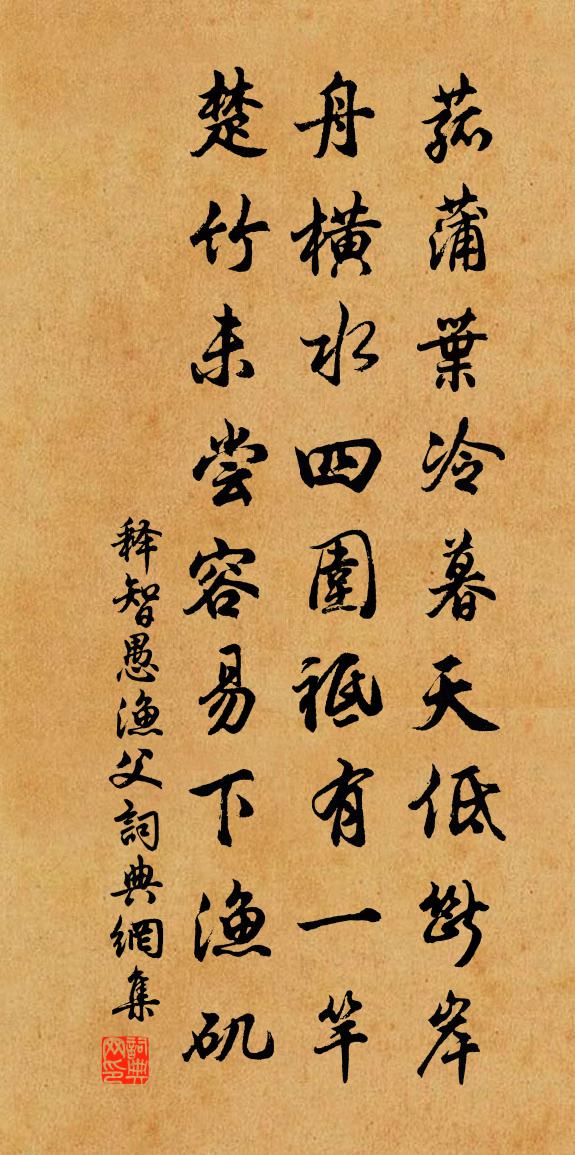 菰蒲葉冷暮天低斷岸
舟橫水四圍祗有一竿
楚竹未尝容易下漁矶
释智愚漁父詞典網集
詞典網印